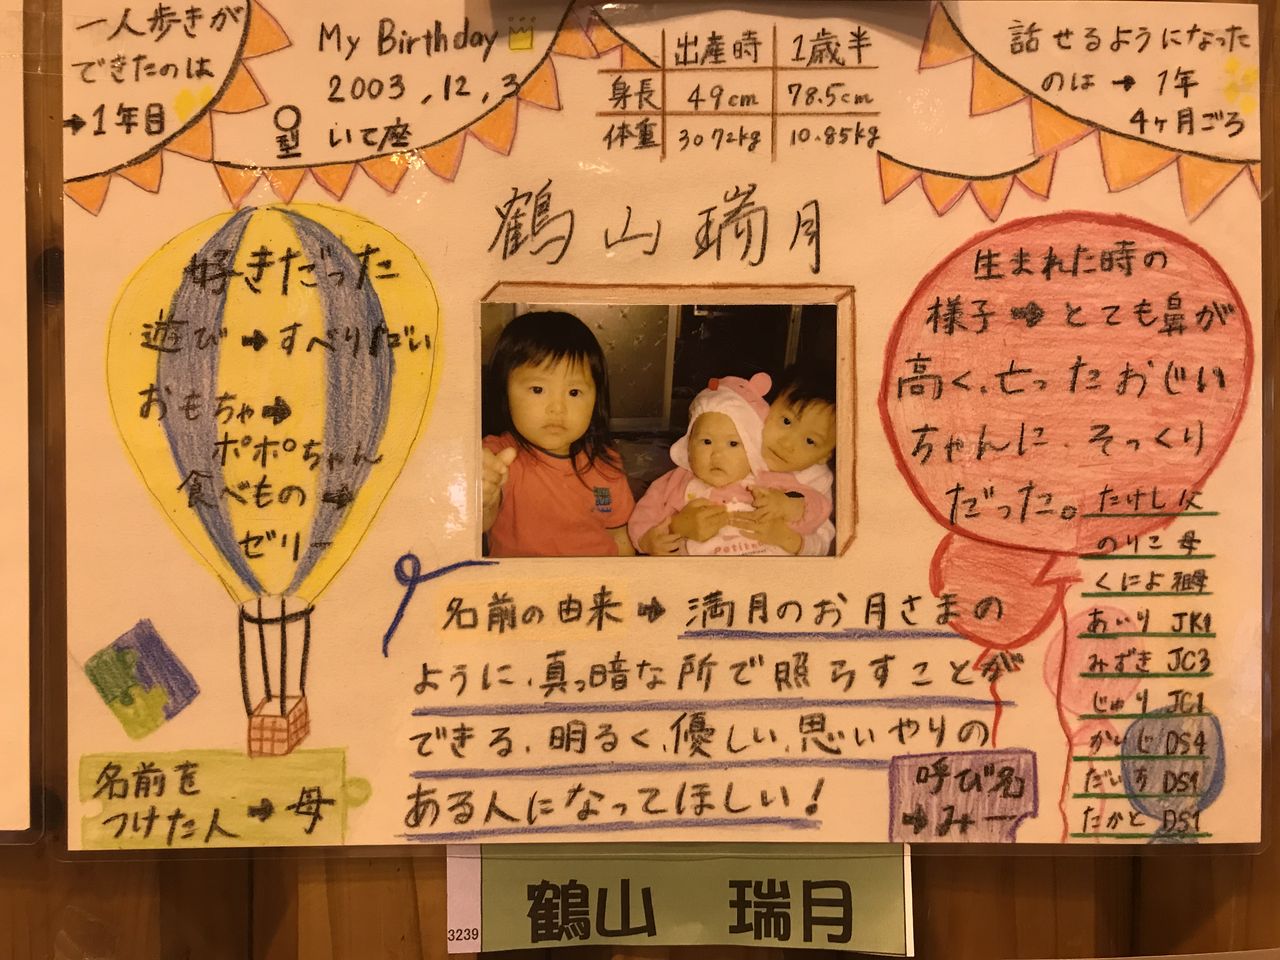 一人歩きが
できたのは
➡1年目
My Birthday
2003,12,3
O型 いて座
出産時 1歳半
身長 49cm 78.5cm
体重 3072kg 10.85kg
話せるようになった
のは➡1年
4ヶ月ごろ
鶴山瑞月
好きだった
遊び➡すべり台
おもちゃ➡
ポポちゃん
食べもの➡
ゼリー
petite
生まれた時の
様子➡とても鼻が
高く、亡ったおじい
ちゃんに、そっくり
だった。
たけし 父
のりこ 母
くによ 祖母
あいり JK1
みずき JC3
じゅり JC1
かいじ DS4
だいち DS1
たかと DS1
名前の由来➡満月のお月さまの
ように、真っ暗な所で照らすことが
できる、明るく、優しい、思いやりの
ある人になってほしい!
名前を
つけた人➡母
呼び名
➡みー
3239
鶴山 瑞月